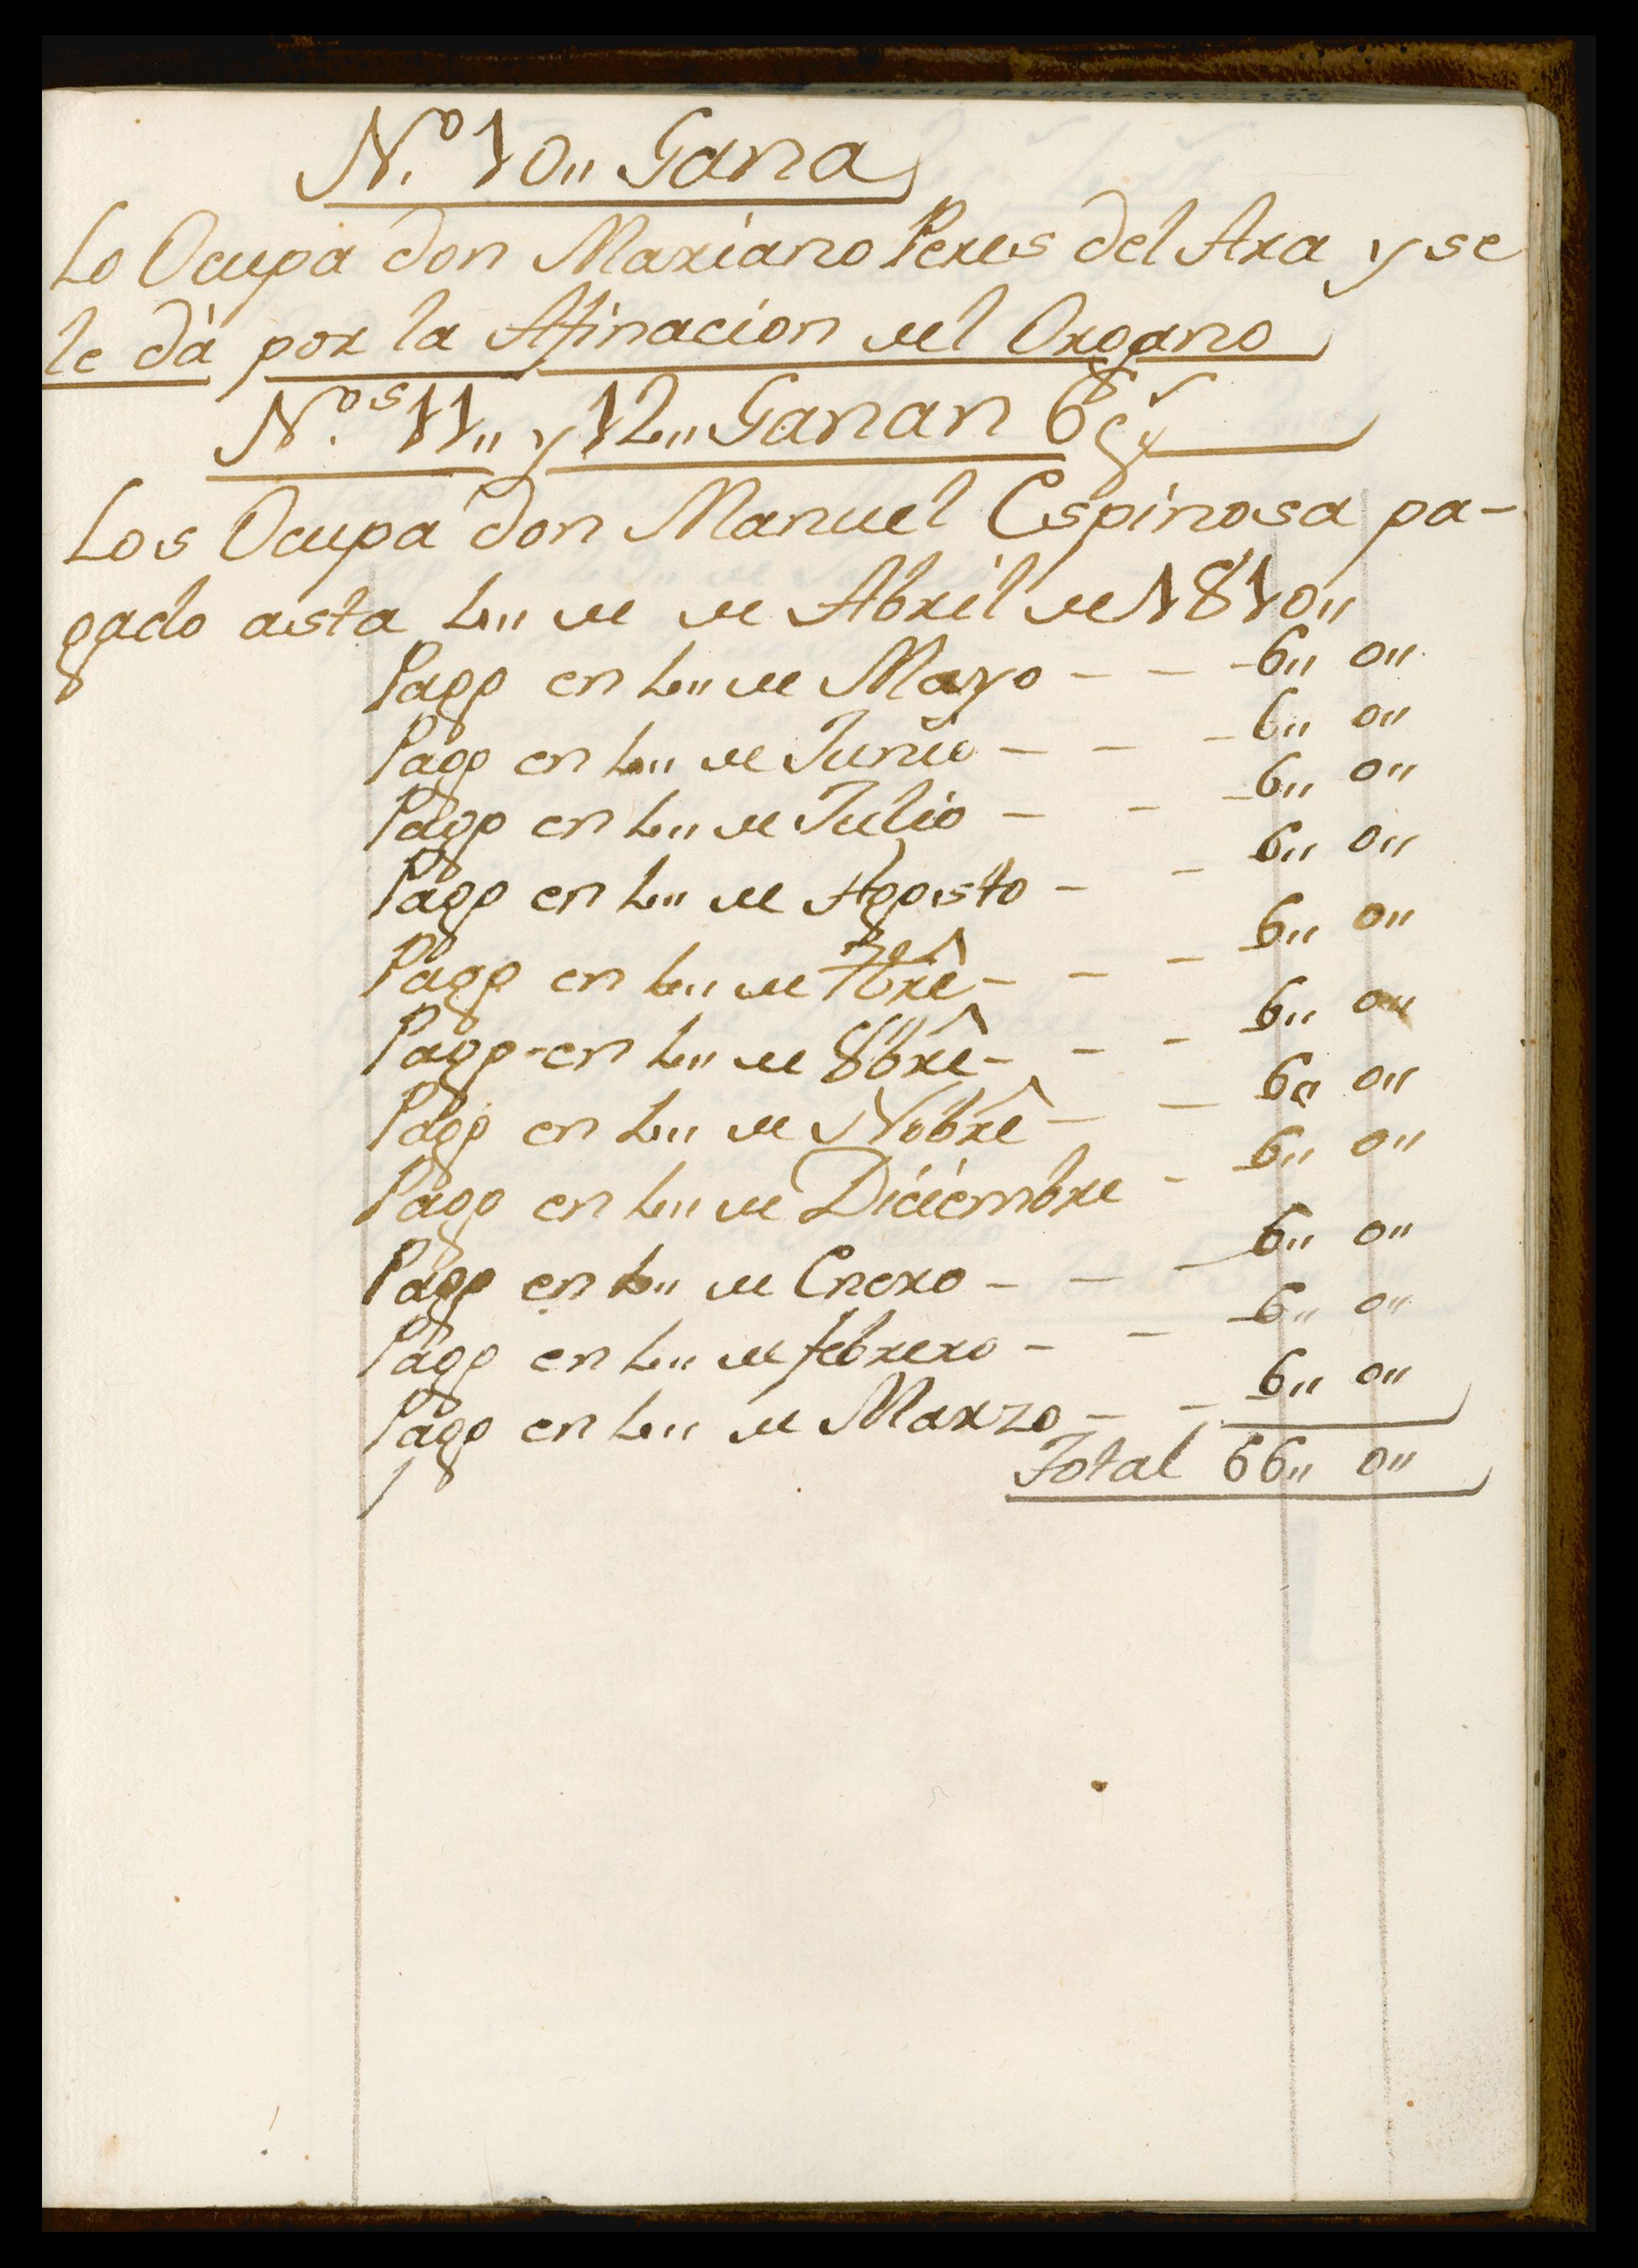 N.º 10,, Gana
Lo Ocupa don Mariano Peres del Ara y se
le dà por la Afinacion del Organo
N.ºs 11,, y 12,, Ganan 6
Los Ocupa don Manuel Espinosa pa-
gado asta 1,, de de Abril de 1810,,
Pago en 1,, de Mayo - - - 6,, 0,,
Pago en 1,, de Junio - - - 6,, 0,,
Pago en 1,, de Julio - - - 6,, 0,,
Pago en 1,, de Agosto - - 6,, 0,,
Pago en 1,, de 7bre - - - 6,, 0,,
Pago en 1,, de 8bre - - - 6,, 0,,
Pago en 1,, de Nobre - - 6,, 0,,
Pago en 1,, de Diciembre - 6,, 0,,
Pago en 1,, de Enero - - - 6,, 0,,
Pago en 1,, de febrero - - 6,, 0,,
Pago en 1,, de Marzo - - 6,, 0,,
Total 66,, 0,,